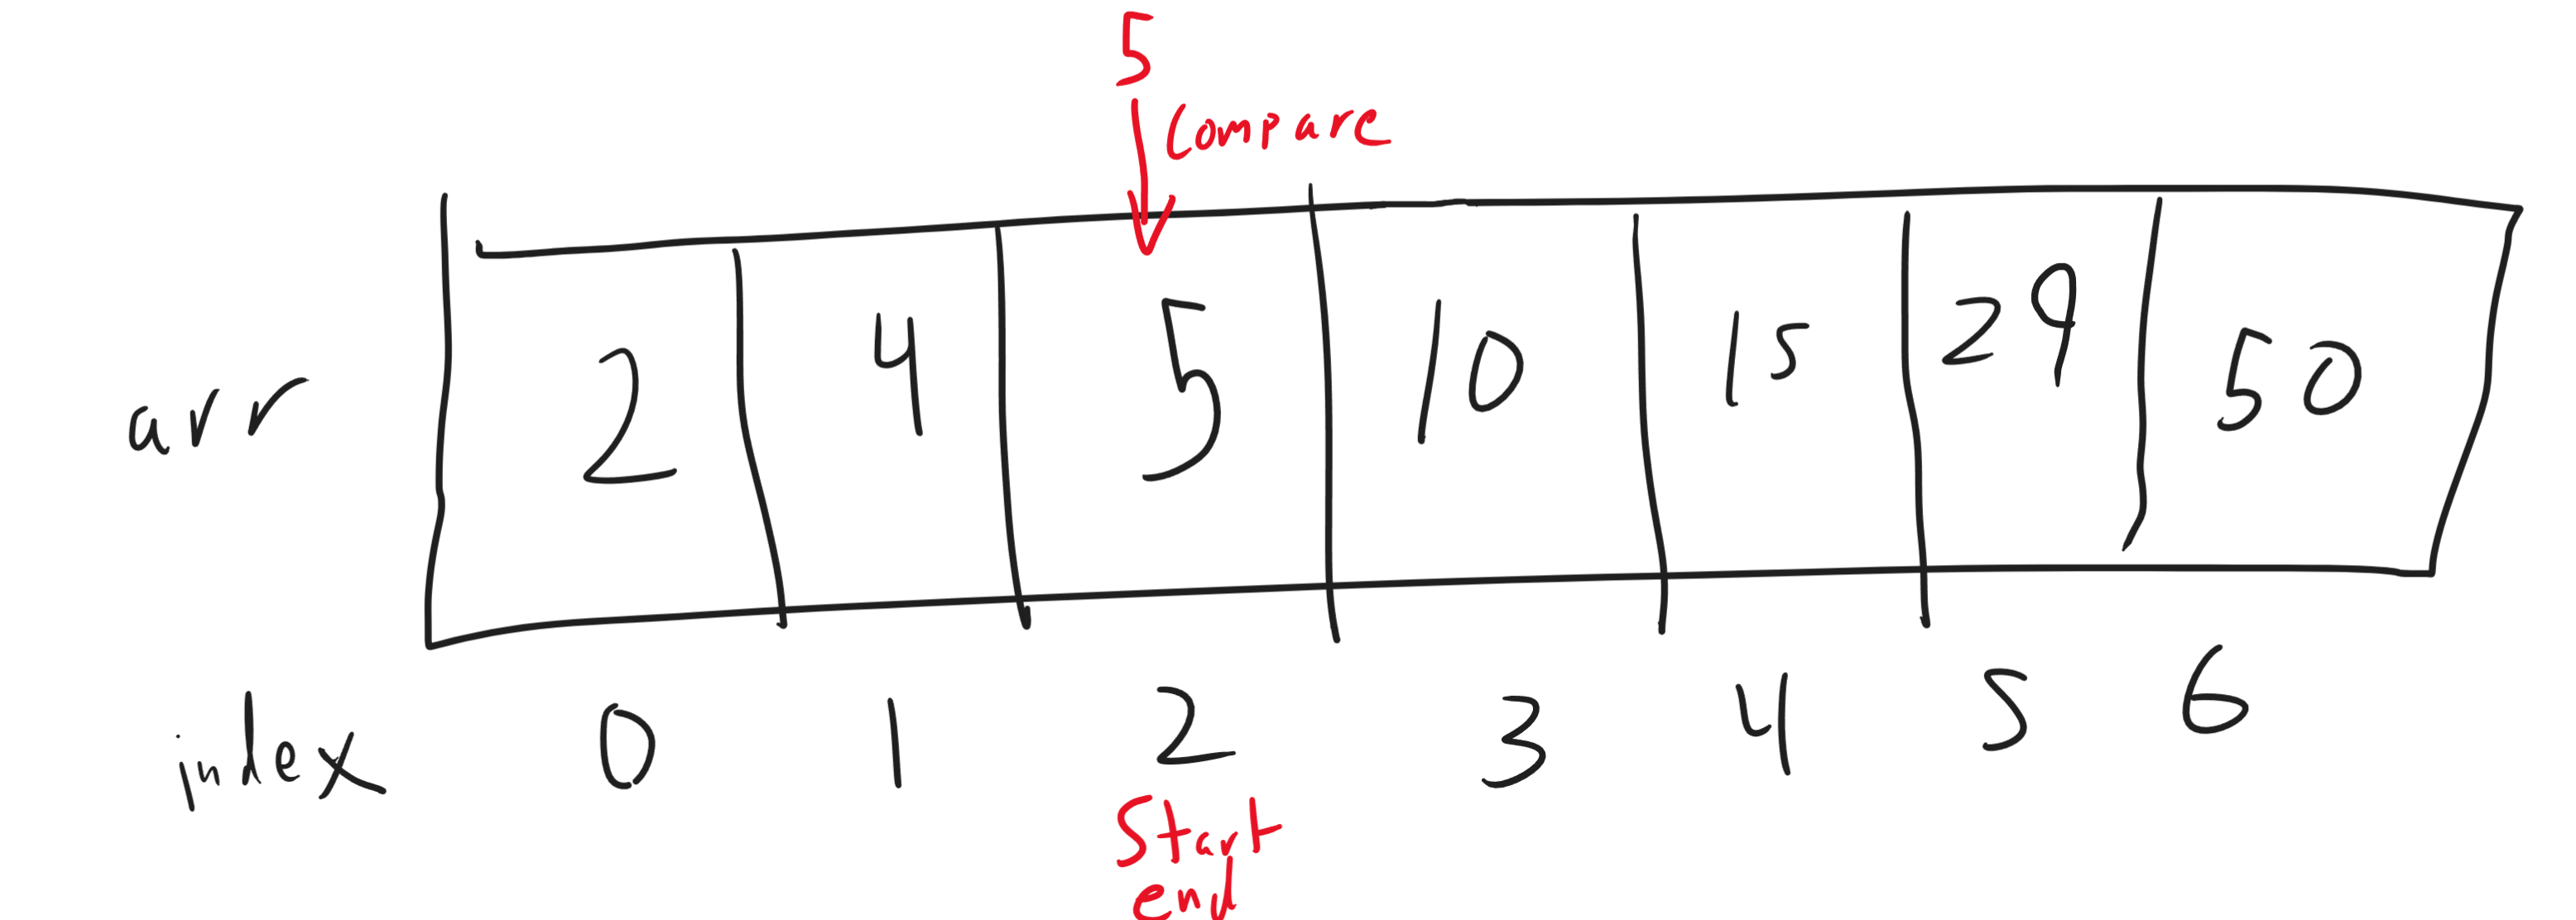 5
Compare
arr 2 4 5 10 15 29 50
index 0 1 2 3 4 5 6
Start
end